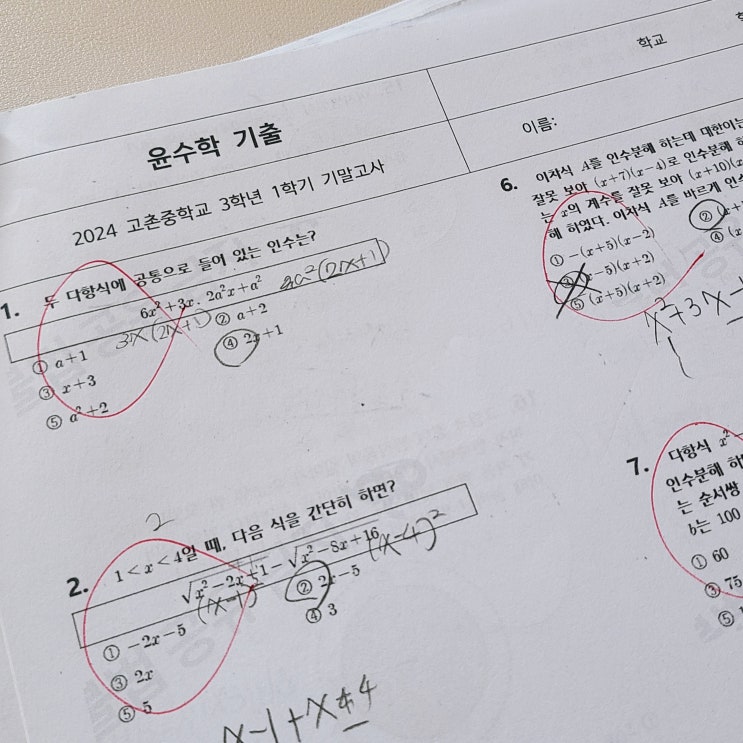 학교
윤수학 기출
이름:
2024 고촌중학교 3학년 1학기 기말고사
1. 두 다항식에 공통으로 들어 있는 인수는?
6x²+3x, 2a²x+a²
3x(2x+1)
a²(2x+1)
① a+1 ② a+2
③ x+3 ④ 2x+1
⑤ a²+2
2
2. 1<x<4일 때, 다음 식을 간단히 하면?
√x²-2x+1 - √x²-8x+16
(x-1)²
(x-4)²
① -2x-5 ② 2x-5
③ 2x ④ 3
⑤ 5
x-1+x-4
6. 이차식 A를 인수분해 하는데 대한이는
잘못 보아 (x+7)(x-4)로 인수분해
는 x의 계수를 잘못 보아 (x+10)(x
해 하였다. 이차식 A를 바르게 인수
① -(x+5)(x-2) ②
③ (x-5)(x+2) ④ (x
⑤ (x+5)(x+2)
x²+3x
7. 다항식 x²
인수분해
는 순서쌍
b는 100
① 60
③ 75
⑤